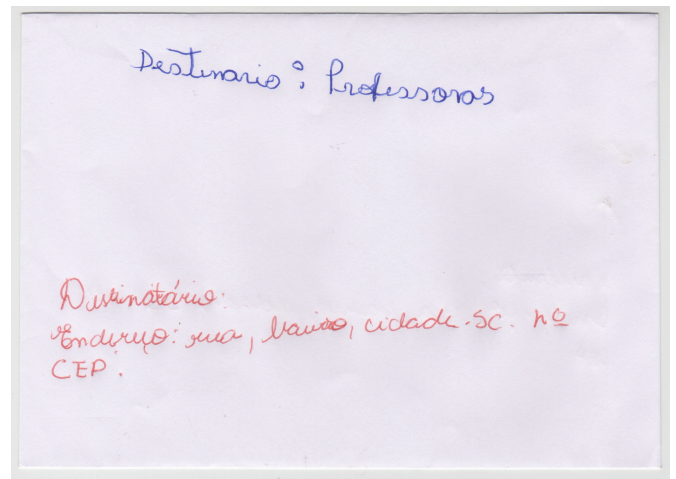 Destinario: Professoras
Destinatário:
Endereço: rua, bairro, cidade-SC. nº
CEP: